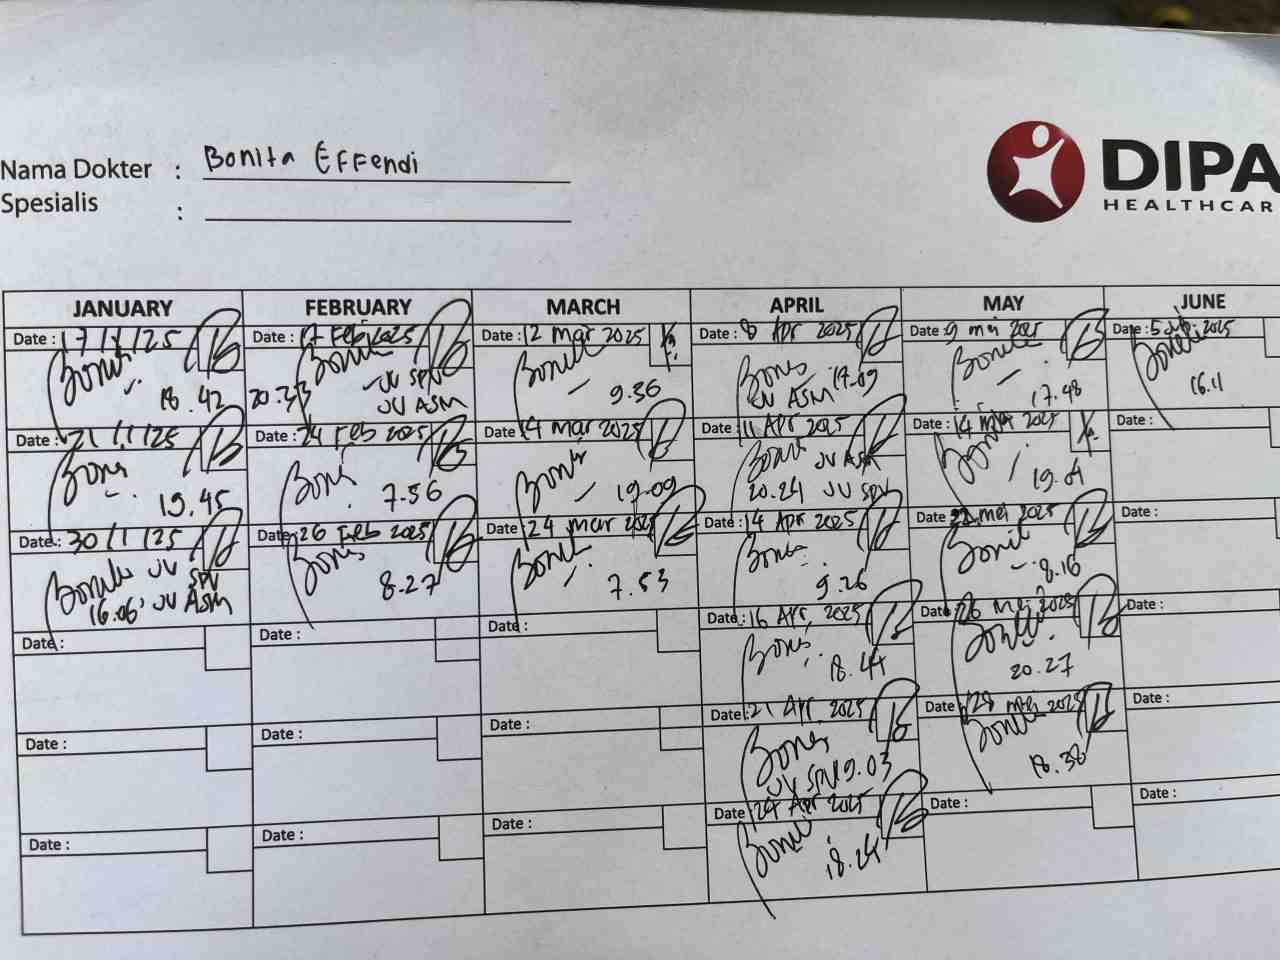 Nama Dokter : Bonita Effendi
Spesialis :
DIPA
HEALTHCAR
JANUARY FEBRUARY MARCH APRIL MAY JUNE
Date : 17/1/125 Date : 17 Feb 2025 Date : 12 Mar 2025 Date : 8 Apr 2025 Date : 9 mei 2025 Date : 5 2025
18.42 20.33 JV SPV JV ASM 9.36 JV ASM 19.09 17.48 16.11
Date : 21/1/125 Date : 24 Feb 2025 Date : 14 Mar 2025 Date : 11 Apr 2025 Date : 14 mei 2025 Date :
19.45 7.56 19.09 JV ASM 20.24 JV SPV 19.04
Date : 30/1/125 Date : 26 Feb 2025 Date : 24 mar 2025 Date : 14 Apr 2025 Date : mei 2025 Date :
JV SPV 16.06 JV ASM 8.27 7.53 9.26 8.16
Date : Date : Date : Date : 16 Apr 2025 Date : 26 mei 2025 Date :
18.44 20.27
Date : Date : Date : Date : 21 Apr 2025 Date : 28 mei 2025 Date :
JV SPV 19.03 18.38
Date : Date : Date : Date : 24 Apr 2025 Date : Date :
18.24